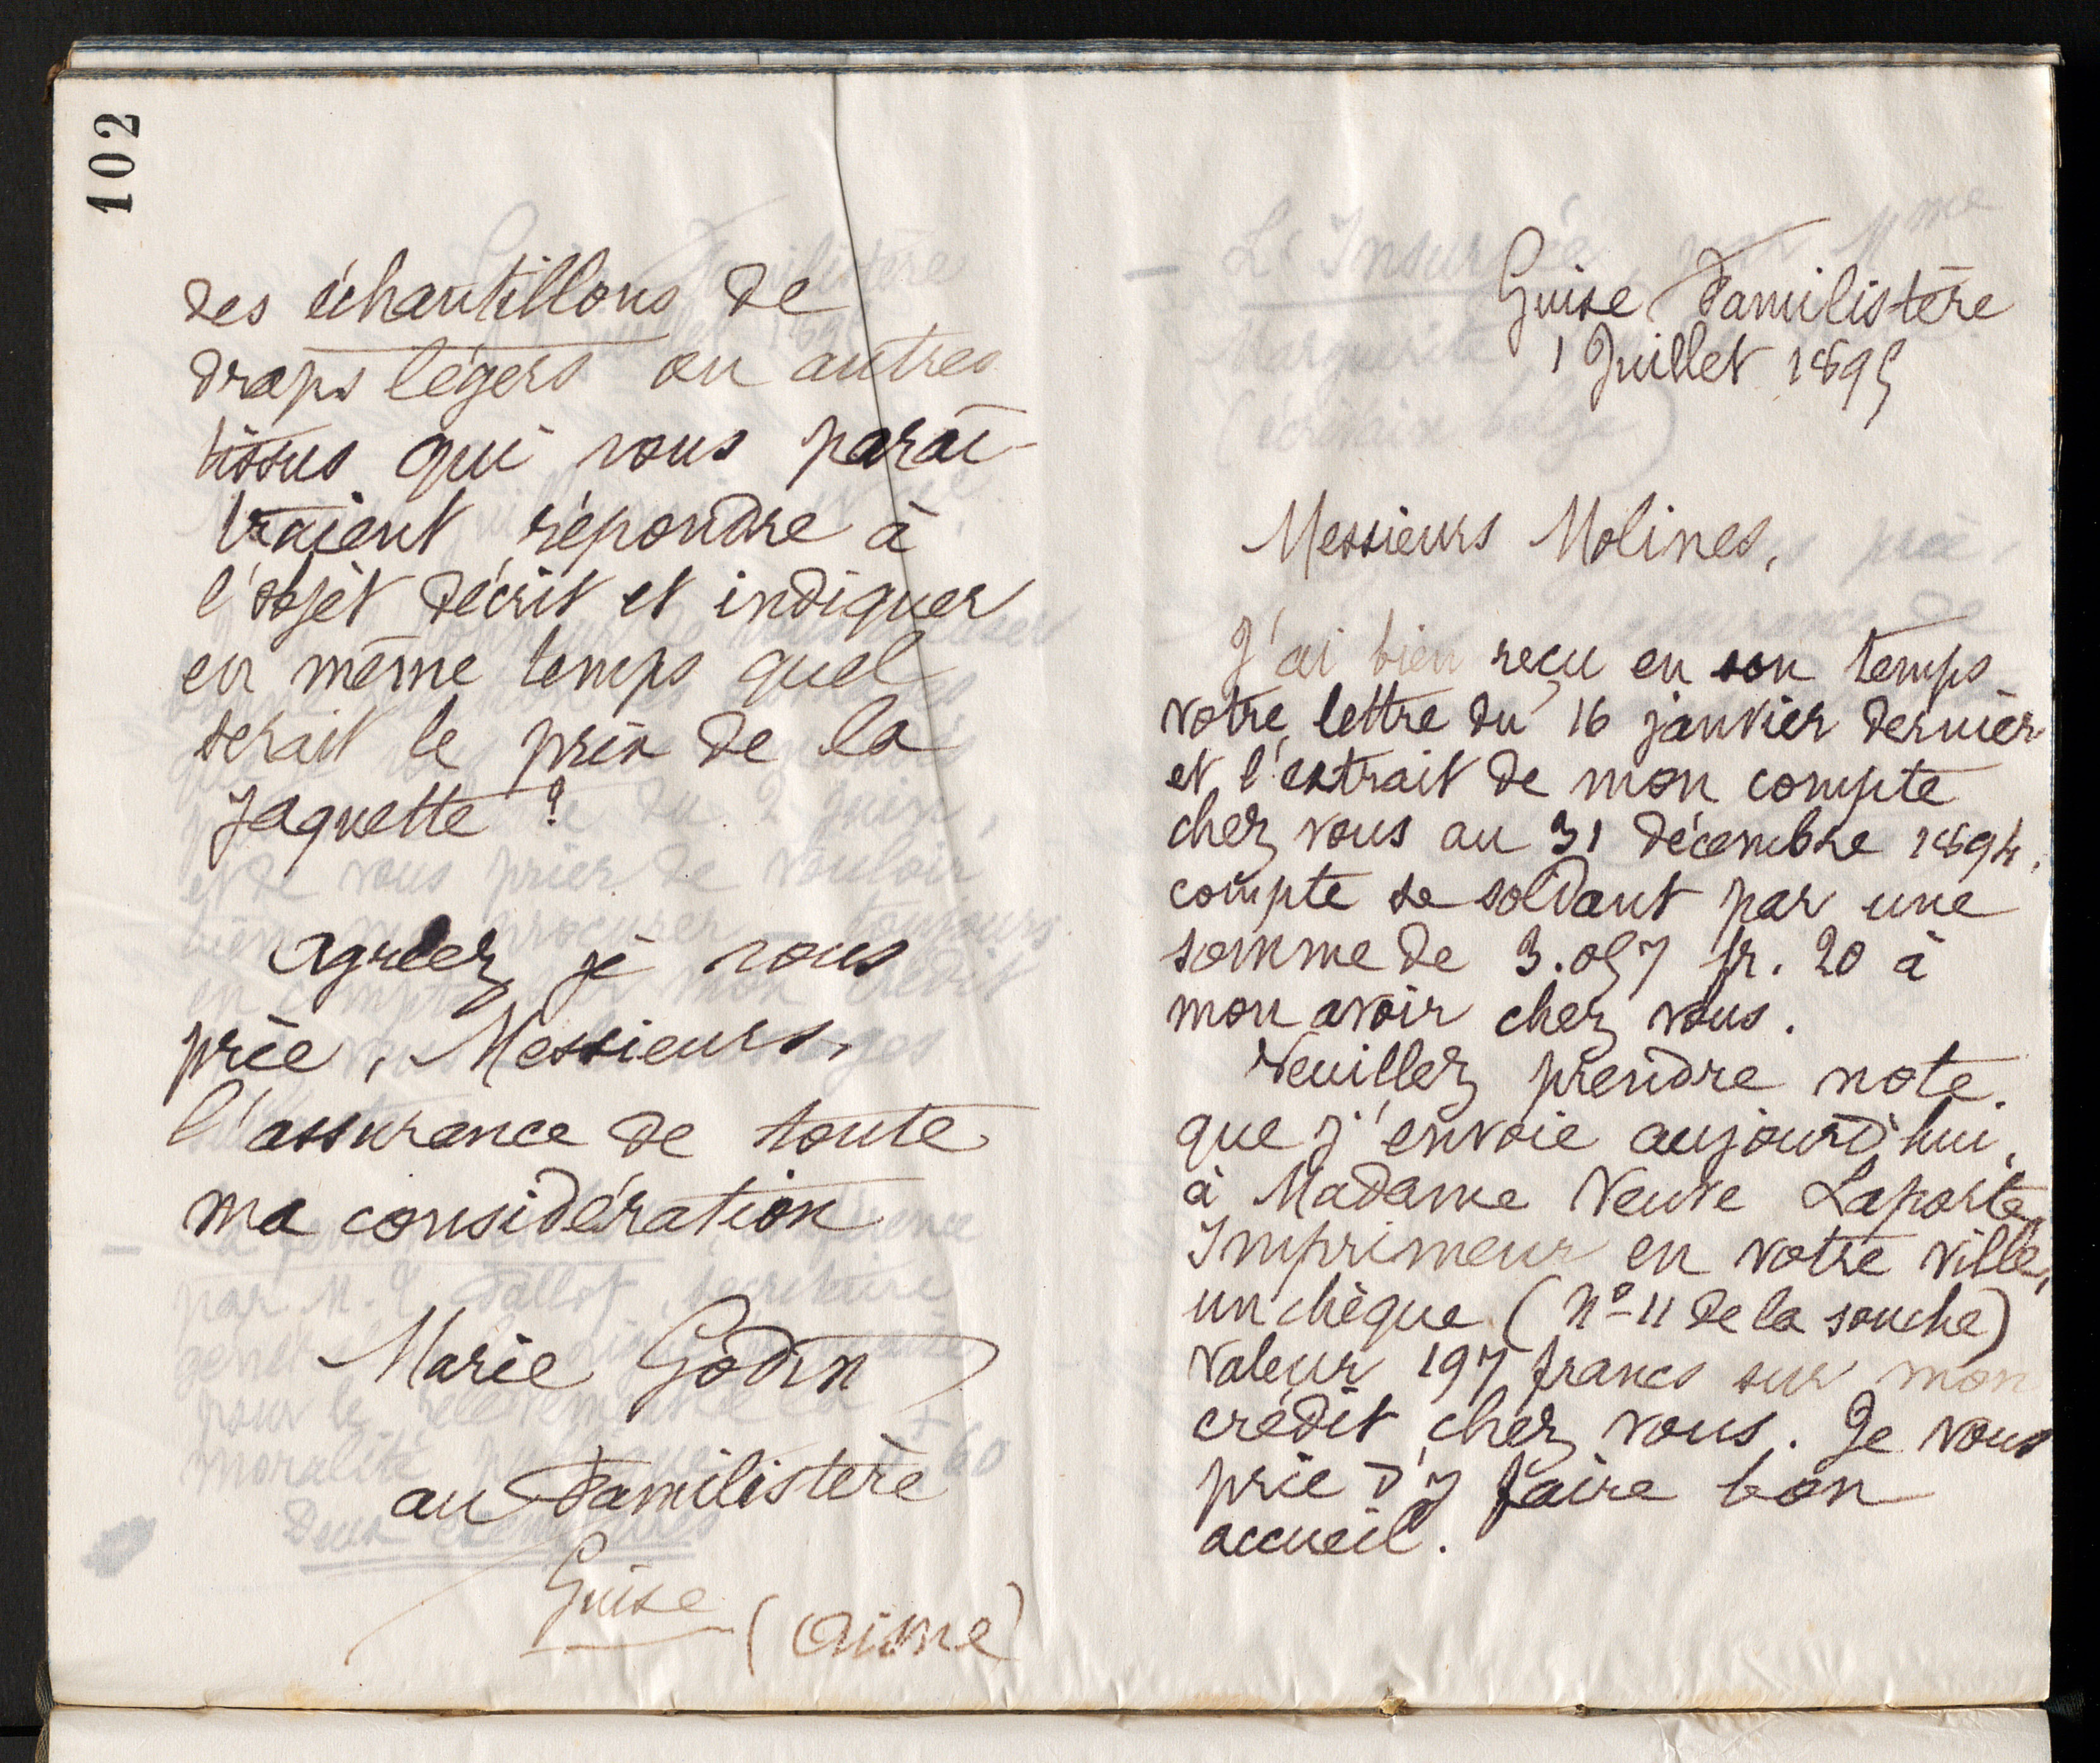 102
des échantillons de
draps légers ou autres
tissus qui vous paraî-
traient répondre à
l'objet décrit et indiquer
en même temps quel
serait le prix de la
jaquette ?
Agréez, je vous
prie, Messieurs,
l'assurance de toute
ma considération
Marie Godin
au Familistère
Guise
(Aisne)
Guise Familistère
1 Juillet 1895
Messieurs Molines,
J'ai bien reçu en son temps
votre lettre du 16 janvier dernier
et l'extrait de mon compte
chez vous au 31 décembre 1894,
compte se soldant par une
somme de 3.057 fr. 20 à
mon avoir chez vous.
Veuillez prendre note
que j'envoie aujourd'hui,
à Madame Veuve Laporte,
Imprimeur en votre ville,
un chèque (N° 11 de la souche)
valeur 197 francs sur mon
crédit chez vous. Je vous
prie d'y faire bon
accueil.